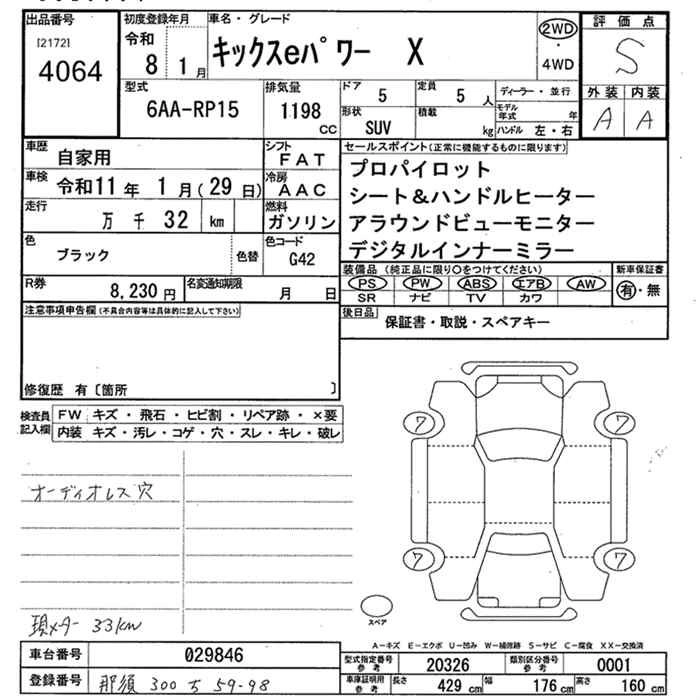 出品番号
[2172]
4064
初度登録年月
令和
8 1月
車名・グレード
キックスeパワー X
2WD
・
4WD
評価点
S
外装 内装
A A
型式
6AA-RP15
排気量
1198
CC
ドア
5
定員
5 人
ディーラー・並行
モデル年式 年
形状
SUV
積載
kg
ハンドル 左・右
車歴
自家用
シフト
FAT
車検
令和11年 1月(29日)
冷房
AAC
走行
万 千 32 km
燃料
ガソリン
色
ブラック
色替
色コード
G42
R券
8,230円
名変通知期限
月 日
セールスポイント(正常に機能するものに限ります)
プロパイロット
シート&ハンドルヒーター
アラウンドビューモニター
デジタルインナーミラー
装備品 (純正品に限り○をつけてください)
新車保証書
PS PW ABS エアB AW
有・無
SR ナビ TV カワ
後日品
保証書・取説・スペアキー
注意事項申告欄(不具合内容等は具体的に記入して下さい)
修復歴 有〔箇所 〕
検査員記入欄
FW キズ・飛石・ヒビ割・リペア跡・×要
内装 キズ・汚レ・コゲ・穴・スレ・キレ・破レ
オーディオレス穴
現メーター 33km
7 7
7 7
スペア
A-キズ E-エクボ U-凹み W-補修跡 S-サビ C-腐食 XX-交換済
車台番号
029846
登録番号
那須 300 ち 59-98
型式指定番号 参考
20326
類別区分番号 参考
0001
車庫証明用 参考
長さ 429 cm
幅 176 cm
高さ 160 cm